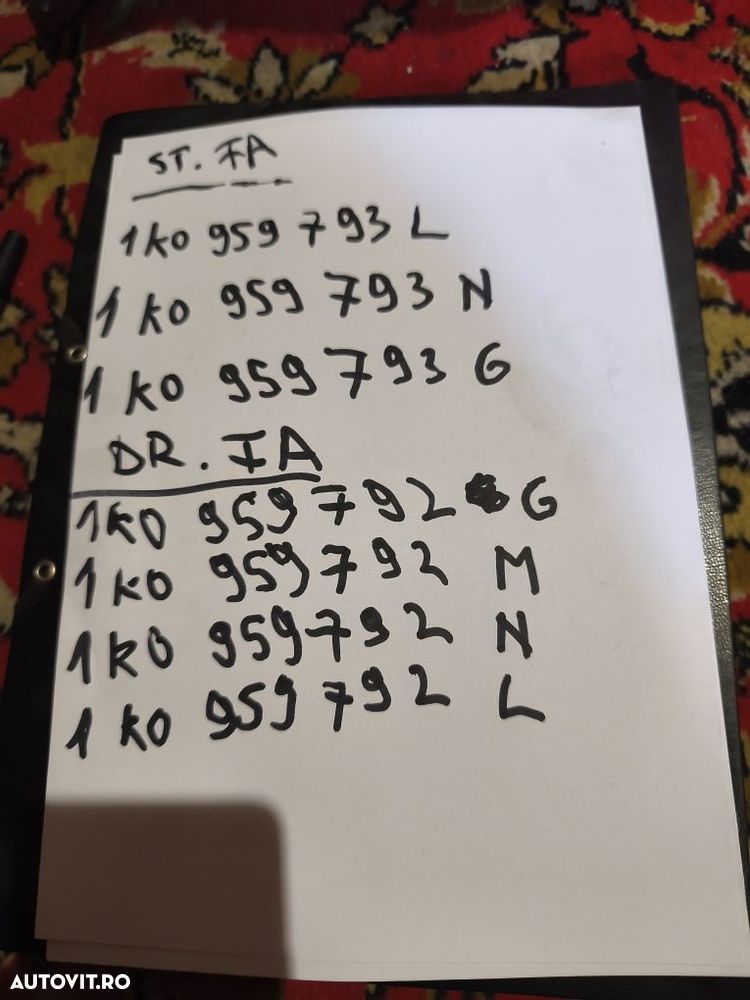 ST. FA
1 KO 959 793 L
1 KO 959 793 N
1 KO 959 793 G
DR. FA
1KO 959 792 G
1 KO 959 792 M
1 KO 959 792 N
1 KO 959 792 L
AUTOVIT.RO